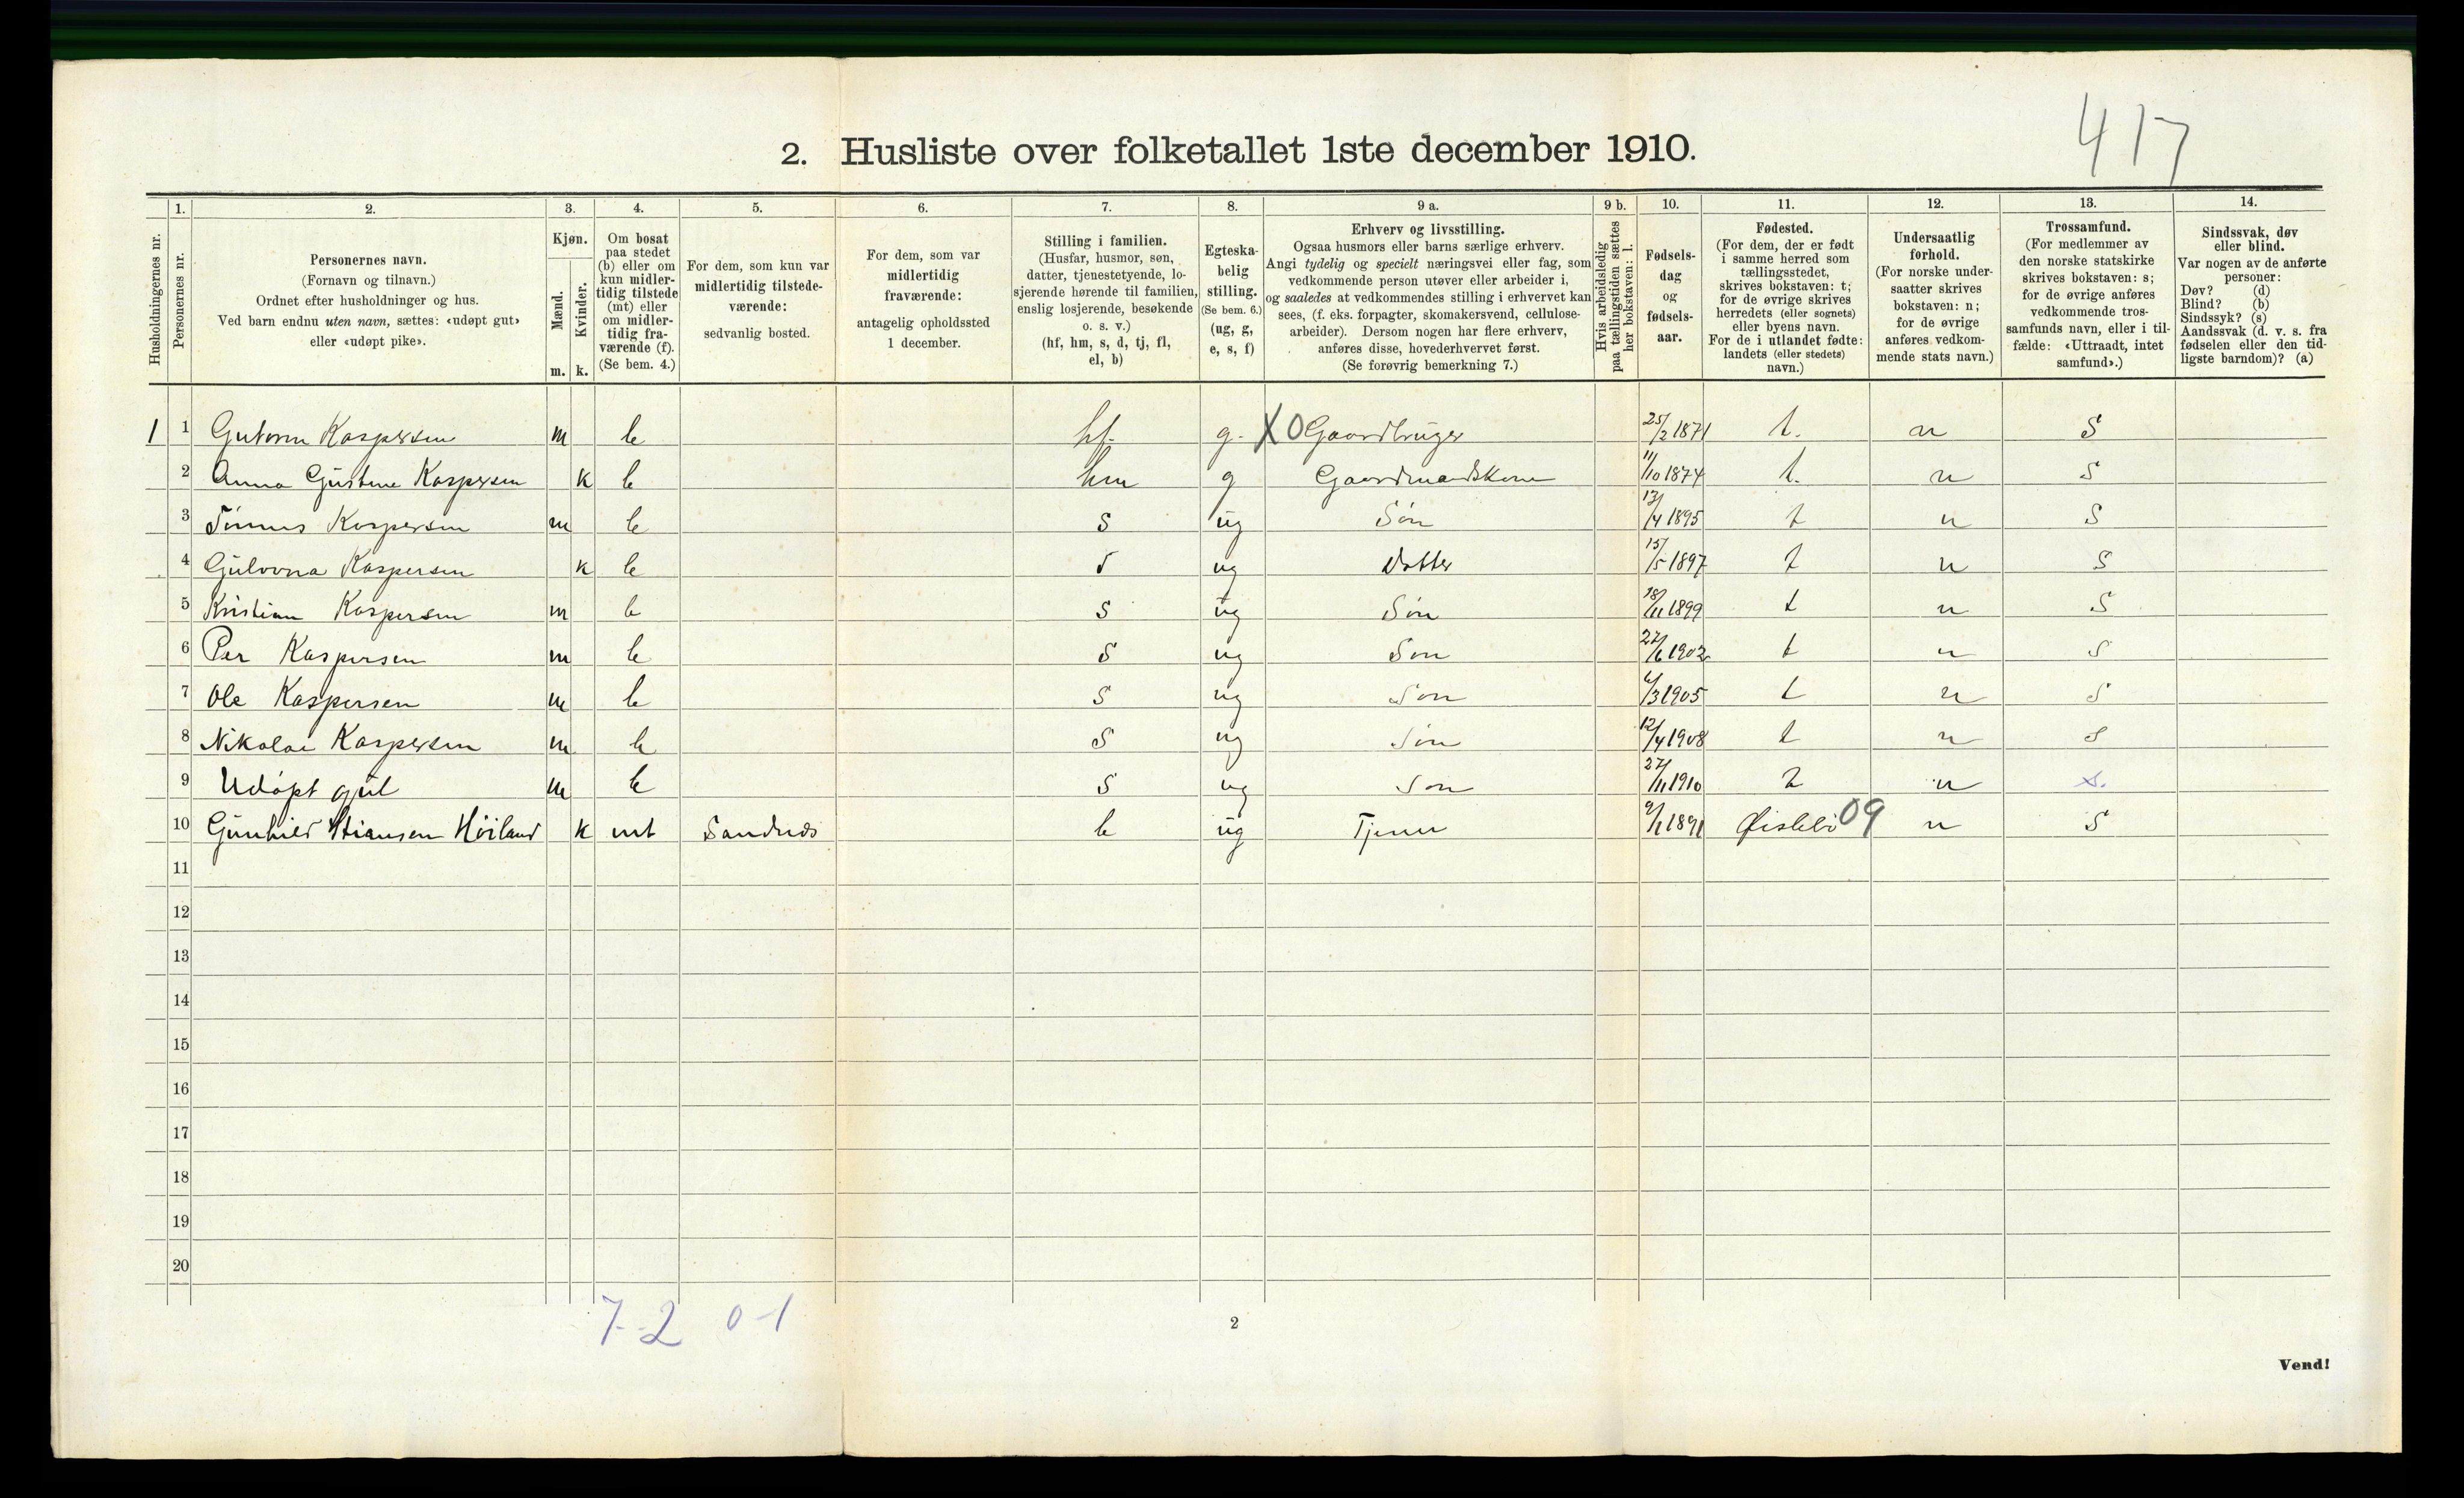 417
2. Husliste over folketallet 1ste december 1910.
Husholdningernes nr.
1. Personernes nr.
2. Personernes navn.
(Fornavn og tilnavn.)
Ordnet efter husholdninger og hus.
Ved barn endnu uten navn, sættes: «udøpt gut»
eller «udøpt pike».
3. Kjøn.
Mænd. Kvinder.
m. k.
4. Om bosat
paa stedet
(b) eller om
kun midler-
tidig tilstede
(mt) eller
om midler-
tidig fra-
værende (f).
(Se bem. 4.)
5. For dem, som kun var
midlertidig tilstede-
værende:
sedvanlig bosted.
6. For dem, som var
midlertidig
fraværende:
antagelig opholdssted
1 december.
7. Stilling i familien.
(Husfar, husmor, søn,
datter, tjenestetyende, lo-
sjerende hørende til familien,
enslig losjerende, besøkende
o. s. v.)
(hf, hm, s, d, tj, fl,
el, b)
8. Egteska-
belig
stilling.
(Se bem. 6.)
(ug, g,
e, s, f)
9 a. Erhverv og livsstilling.
Ogsaa husmors eller barns særlige erhverv.
Angi tydelig og specielt næringsvei eller fag, som
vedkommende person utøver eller arbeider i,
og saaledes at vedkommendes stilling i erhvervet kan
sees, (f. eks. forpagter, skomakersvend, cellulose-
arbeider). Dersom nogen har flere erhverv,
anføres disse, hovederhvervet først.
(Se forøvrig bemerkning 7.)
9 b. Hvis arbeidsledig
paa tællingstiden sættes
her bokstaven: l.
10. Fødsels-
dag
og
fødsels-
aar.
11. Fødested.
(For dem, der er født
i samme herred som
tællingsstedet,
skrives bokstaven: t;
for de øvrige skrives
herredets (eller sognets)
eller byens navn.
For de i utlandet fødte:
landets (eller stedets)
navn.)
12. Undersaatlig
forhold.
(For norske under-
saatter skrives
bokstaven: n;
for de øvrige
anføres vedkom-
mende stats navn.)
13. Trossamfund.
(For medlemmer av
den norske statskirke
skrives bokstaven: s;
for de øvrige anføres
vedkommende tros-
samfunds navn, eller i til-
fælde: «Uttraadt, intet
samfund».)
14. Sindssvak, døv
eller blind.
Var nogen av de anførte
personer:
Døv? (d)
Blind? (b)
Sindssyk? (s)
Aandssvak (d. v. s. fra
fødselen eller den tid-
ligste barndom)? (a)
1 1 Gutorm Kaspersen m b hf. g. X0 Gaardbruger 25/2 1871 t. n S
2 Anna Gustine Kaspersen k b hm g Gaardmandskone 11/10 1874 t. n S
3 Tønnes Kaspersen m b S ug Søn 13/4 1895 t n S
4 Gulovna Kaspersen k b d ug Datter 15/5 1897 t n S
5 Kristian Kaspersen m b S ug Søn 18/11 1899 t n S
6 Per Kaspersen m b S ug Søn 27/6 1902 t n S
7 Ole Kaspersen m b S ug Søn /3 1905 t n S
8 Nikolai Kaspersen m b S ug Søn 12/4 1908 t n S
9 Udøpt gut m b S ug Søn 27/11 1910 t n s.
10 Gunhild Stiansen Höiland k mt Sandnes b ug Tjener 9/1 1891 Øislebö 09 n S
11
12
13
14
15
16
17
18
19
20
7-2 0-1
2
Vend!